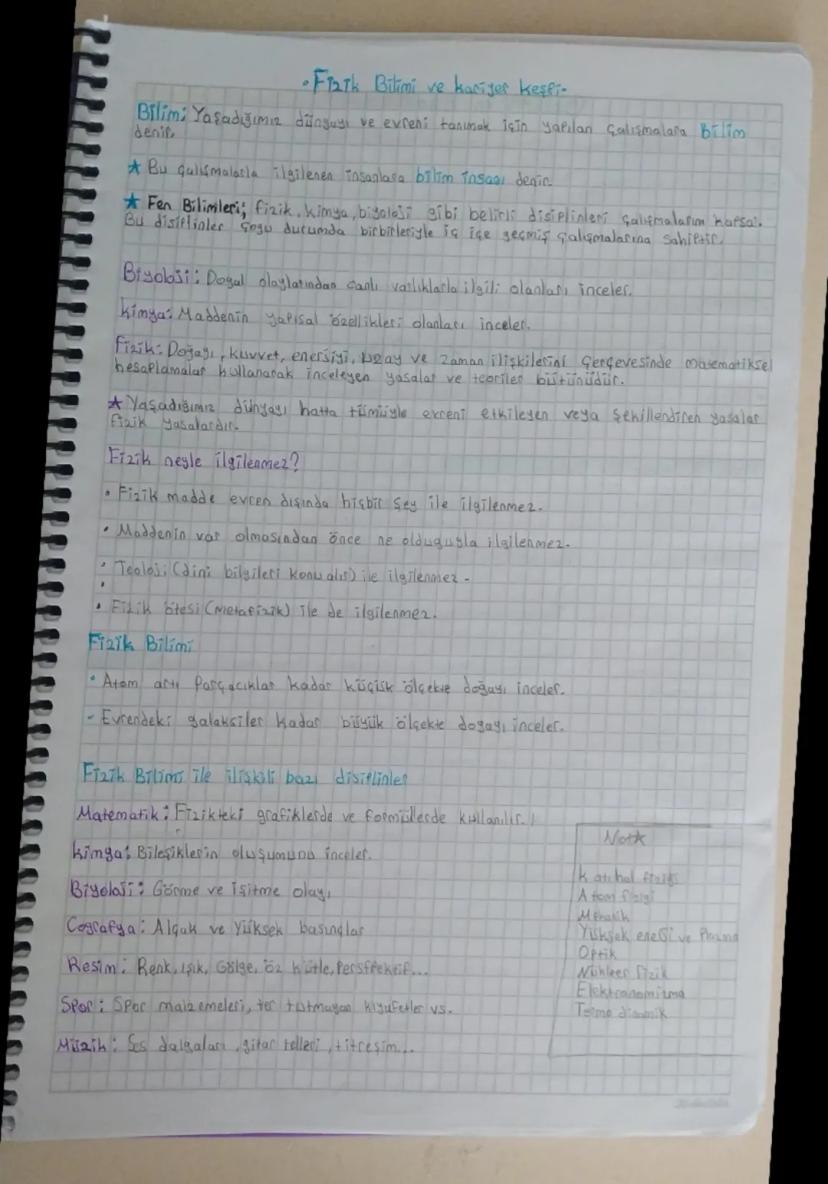 • Fizik Bilimi ve kariyer keşfi-
Bilim: Yaşadığımız dünyayı ve evreni tanımak için yapılan çalışmalara Bilim
denir.
★ Bu çalışmalarla ilgilenen insanlara bilim insanı denir.
★ Fen Bilimleri; fizik, kimya, biyoloji gibi belirli disiplinleri çalışmalarını kapsar.
Bu disiplinler çoğu durumda birbirleriyle iç içe geçmiş çalışmalarına sahiptir.
Biyoloji: Doğal olaylarından canlı varlıklarla ilgili olanları inceler.
Kimya: Maddenin yapısal özellikleri olanları inceler.
Fizik: Doğayı, kuvvet, enerjiyi, uzay ve zaman ilişkilerini çerçevesinde matematiksel
hesaplamalar kullanarak inceleyen yasalar ve teoriler bütünüdür.
★ Yaşadığımız dünyayı hatta tümüyle evreni etkileyen veya şekillendiren yasalar
fizik yasalardır.
Fizik neyle ilgilenmez?
• Fizik madde evren dışında hiçbir şey ile ilgilenmez.
• Maddenin var olmasından önce ne olduğuyla ilgilenmez.
• Teoloji (dini bilgileri konu alır) ile ilgilenmez -
• Fizik ötesi (Metafizik) ile de ilgilenmez.
Fizik Bilimi
• Atom altı parçacıklar kadar küçük ölçekte doğayı inceler.
- Evrendeki galaksiler kadar büyük ölçekte doğayı inceler.
Fizik Bilimi ile ilişkili bazı disiplinler
Matematik: Fizikteki grafiklerde ve formüllerde kullanılır.
Kimya: Bileşiklerin oluşumunu inceler.
Biyoloji: Görme ve işitme olayı
Coğrafya: Alçak ve Yüksek basınçlar
Resim: Renk, ışık, Gölge, öz kütle, Perspektif...
Spor: Spor malzemeleri, ter tutmayan kıyafetler vs.
Müzik: Ses dalgaları, gitar telleri, titreşim...
Katı hal fiziği
Atom fiziği
Mekanik
Yüksek enerji ve Plazma
Optik
Nükleer Fizik
Termo dinamik